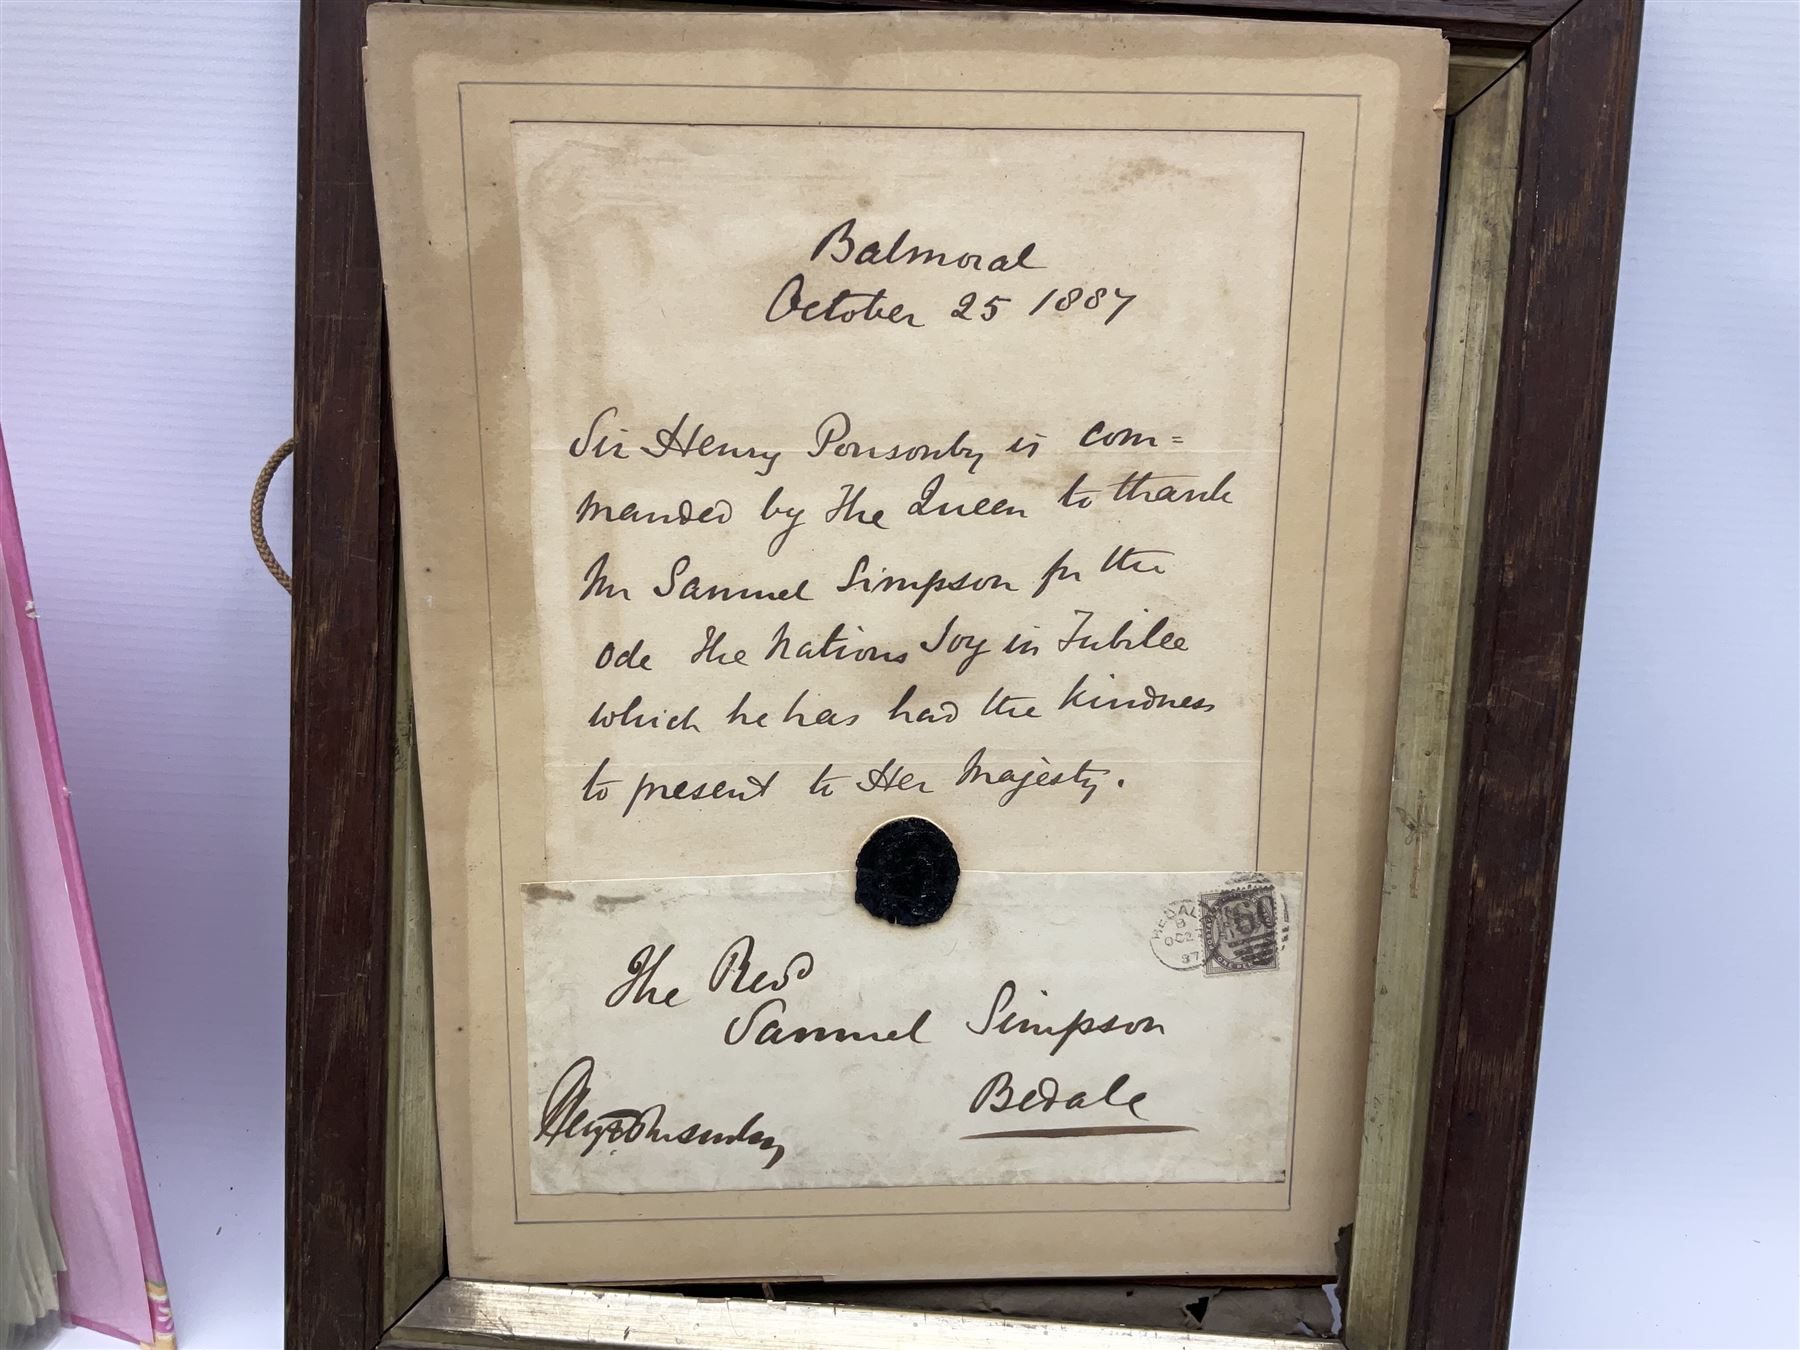 Balmoral
October 25 1887
Sir Henry Ponsonby is com=
manded by The Queen to thank
Mr Samuel Simpson for the
Ode The Nations Joy in Jubilee
which he has had the kindness
to present to Her Majesty.
The Revd
Samuel Simpson
Bedale
Henry F Ponsonby
BEDALE
B
OC 2
87